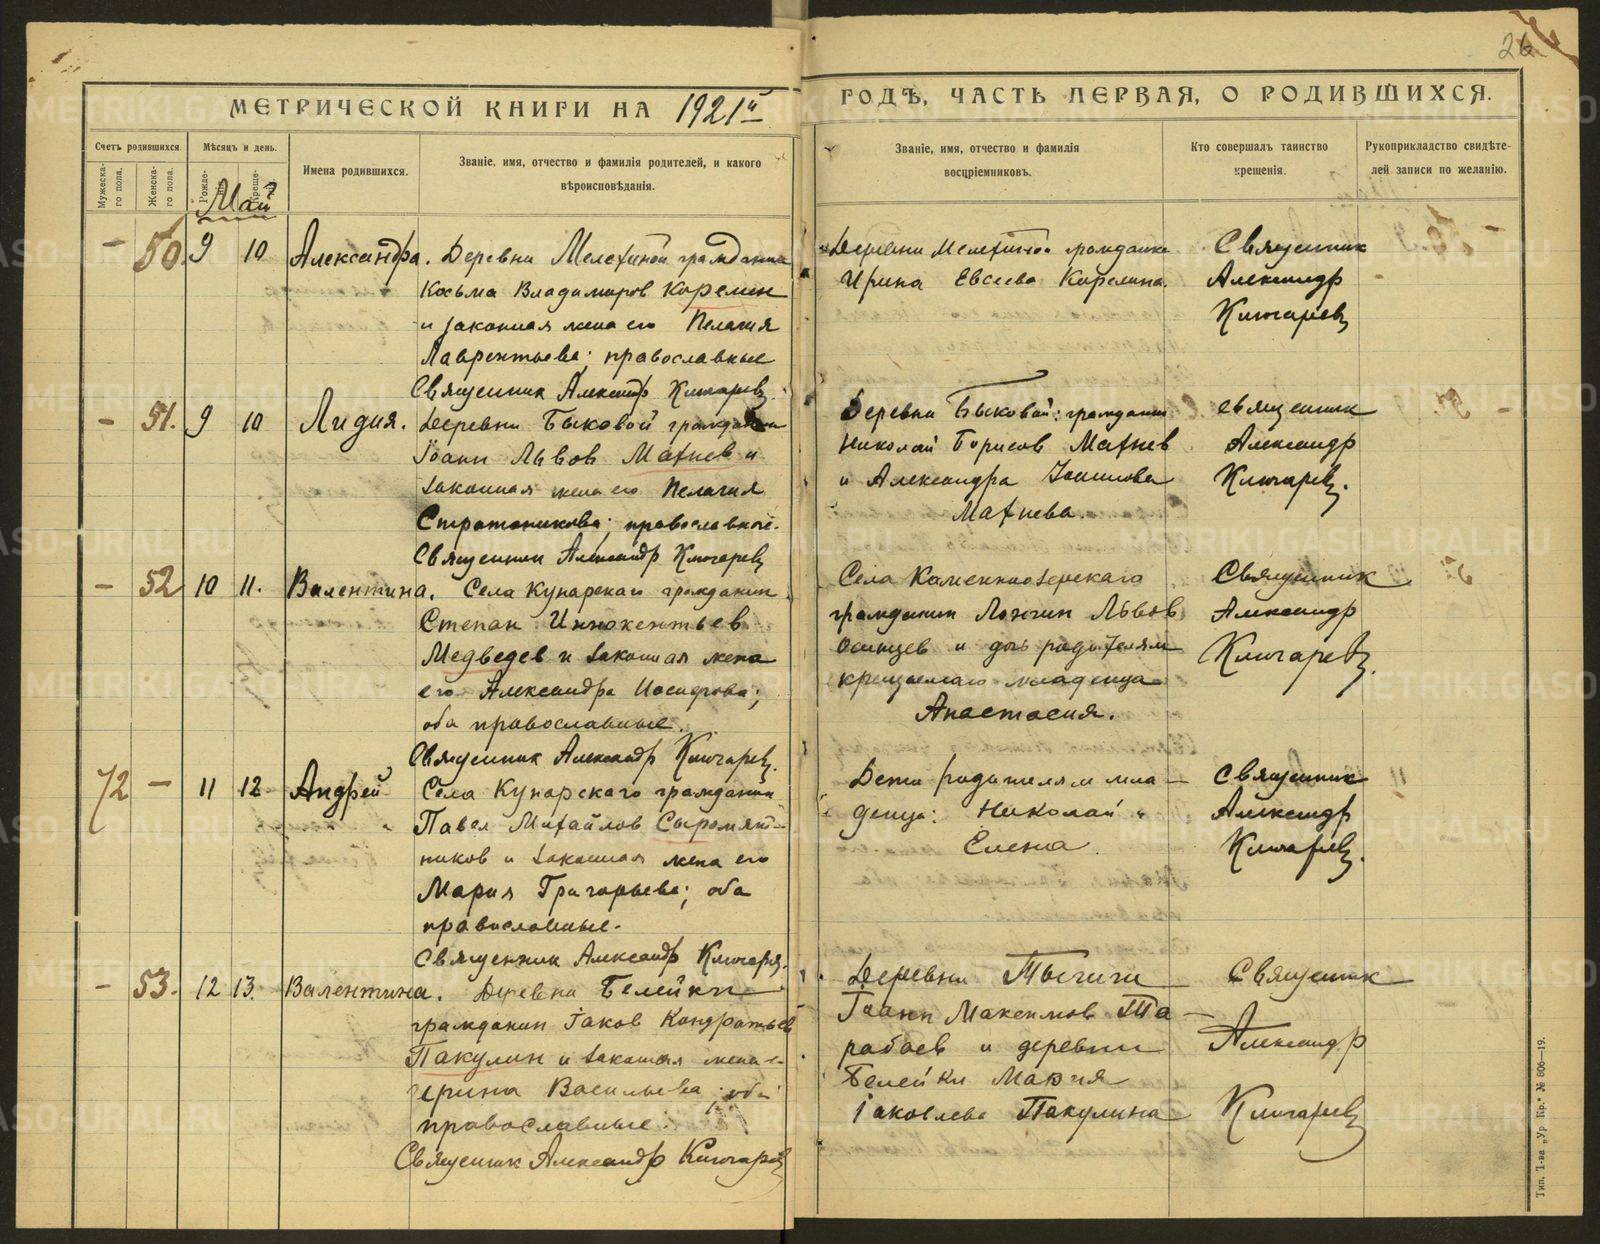 26
МЕТРИЧЕСКОЙ КНИГИ НА 1921й
ГОДЪ, ЧАСТЬ ПЕРВАЯ, О РОДИВШИХСЯ.
Счетъ родившихся.
Мѣсяцъ и день.
Имена родившихся.
Званіе, имя, отчество и фамилія родителей, и какого
вѣроисповѣданія.
Званіе, имя, отчество и фамилія
воспріемниковъ.
Кто совершалъ таинство
крещенія.
Рукоприкладство свидѣте-
лей записи по желанію.
Мужеска-
го пола.
Женска-
го пола.
Май
– 50. 9 10 Александра. Деревни Мелехиной гражданин
Косьма Владимиров Карелин
и законная жена его Пелагия
Лаврентьева; православные
Священник Александр Ключарев
Деревни Мелехиной гражданка
Ирина Евсеева Карелина.
Священник
Александр
Ключарев
– 51. 9 10 Лидия. Деревни Быковой гражданин
Іоанн Львов Махнев и
законная жена его Пелагия
Стратоникова; православные.
Священник Александр Ключарев
Деревни Быковой: граждане
Николай Борисов Махнев
и Александра Іоаннова
Махнева.
священник
Александр
Ключарев.
– 52 10 11. Валентина. Села Кунарскаго гражданин
Степан Иннокентьев
Медведев и законная жена
его Александра Иосифова;
оба православные.
Священник Александр Ключарев.
Села Каменноозерскаго
гражданин Логгин Львов
Осинцев и дочь родителям
крещаемаго младенца
Анастасия.
Священник
Александр
Ключарев.
72 – 11 12 Андрей Села Кунарскаго гражданин
Павел Михайлов Сыромят-
ников и законная жена его
Мария Григорьева; оба
православные.
Священник Александр Ключарев.
Дети родителям мла-
денца: Николай и
Елена.
Священник
Александр
Ключарев.
– 53. 12 13. Валентина. Деревни Белейки
гражданин Іаков Кондратьев
Пакулин и законная жена е-
ерина Васильева; оба
православные.
Священник Александр Ключарев
Деревни Тыгиги
Іоанн Максимов Та-
рабаев и деревни
Белейки Мария
Іаковлева Пакулина
Священник
Александр
Ключарев
Тип. Т-ва „Ур Кр." № 806—19.
METRIKI.GASO-URAL.RU